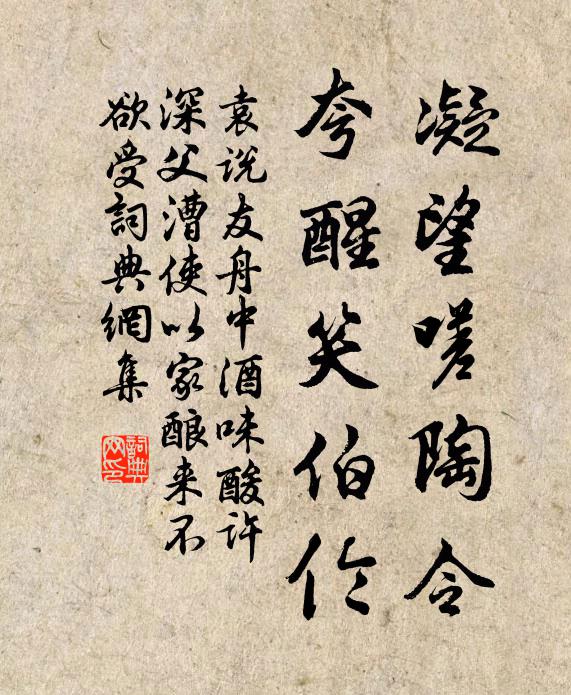 凝望嗟陶令
夸醒笑伯伦
袁说友舟中酒味酸许
深父漕使以家酿来不
欲受詞典網集
詞典
网印